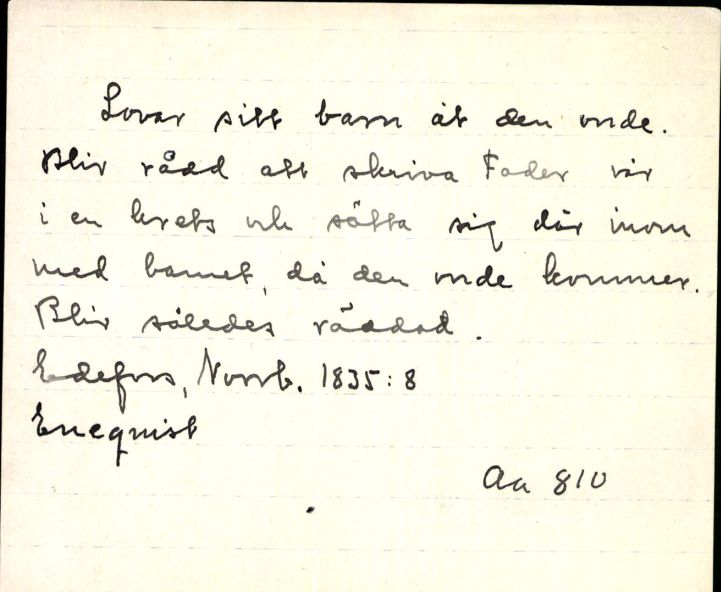 Lovar sitt barn åt den onde.
Blir rådd att skriva Fader vår
i en krets och sätta sig där inom
med barnet, då den onde kommer.
Blir således räddad.
Edefors, Norrb. 1835:8
Enequist
Aa 810